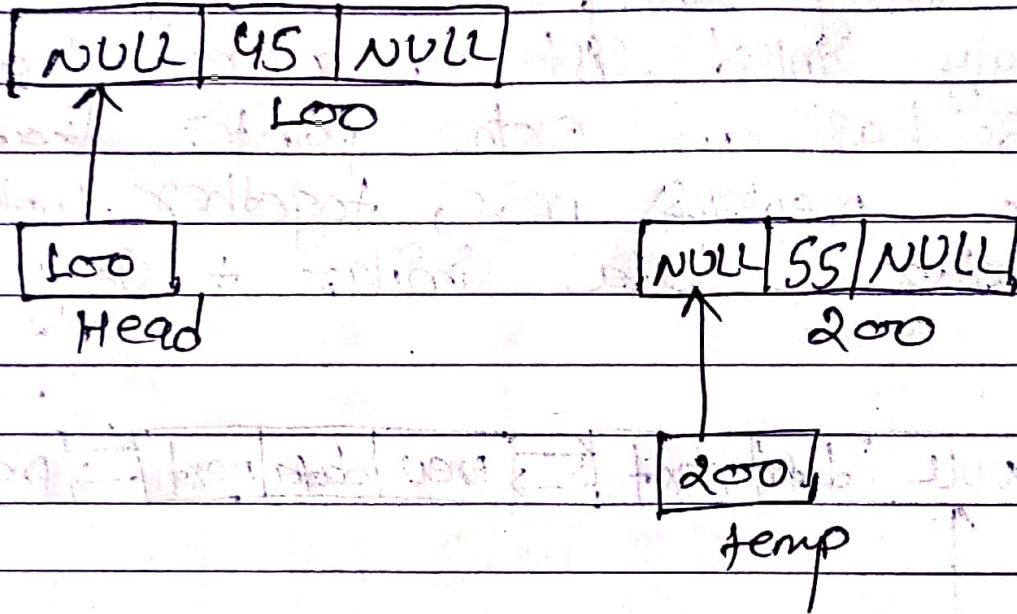 NULL 45 NULL
100
100
Head
NULL 55 NULL
200
200
temp